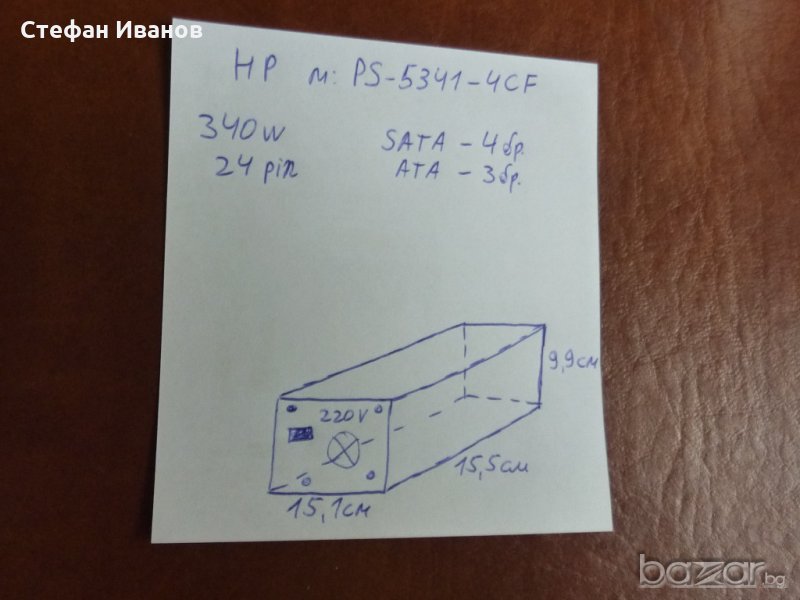 Стефан Иванов
HP м: PS-5341-4CF
340W SATA - 4бр.
24 pin ATA - 3бр.
9,9см
220V
15,5см
15,1см
bazar.bg